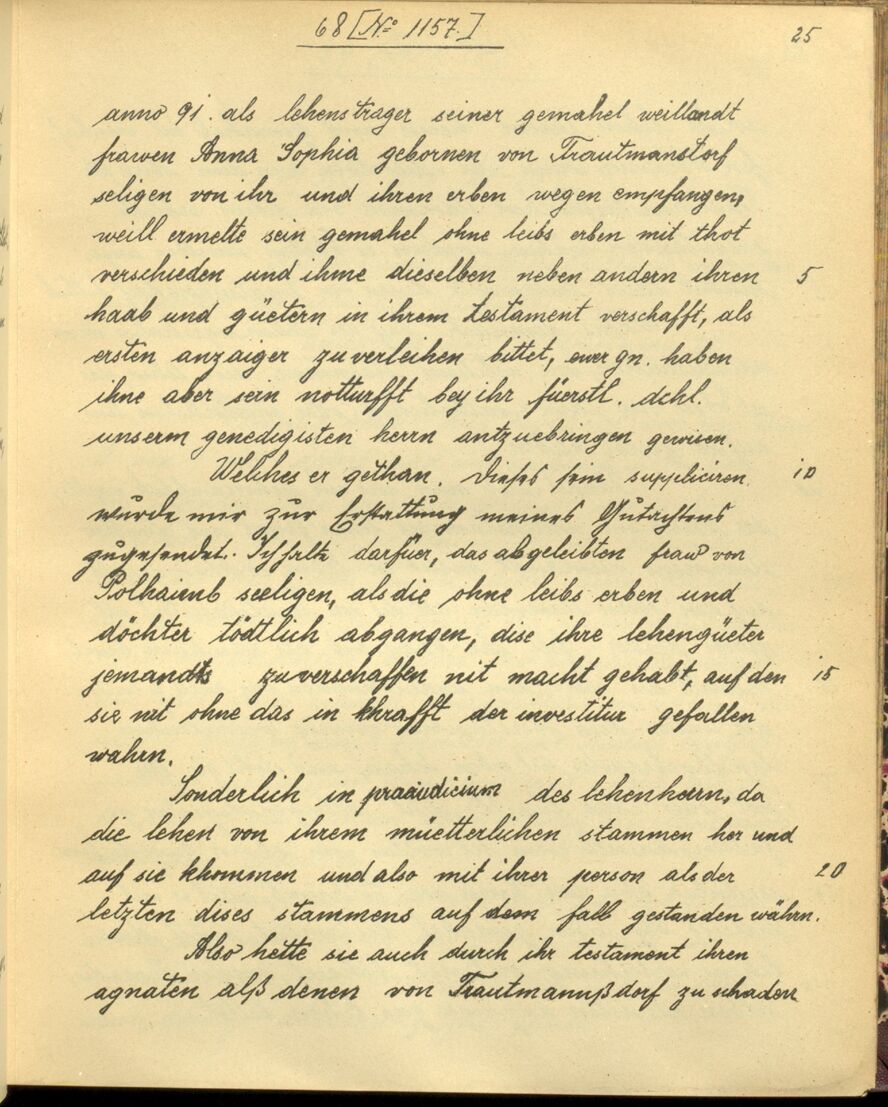 68 [No 1157.]
25
anno 91. als lehenstrager seiner gemahel weillandt
frawen Anna Sophia gebornen von Trautmanstorf
seligen von ihr und ihren erben wegen empfangen,
weill ermelte sein gemahel ohne leibs erben mit thot
verschieden und ihme dieselben neben andern ihren 5
haab und güetern in ihrem testament verschafft, als
ersten anzaiger zu verleihen bittet, ewer gn. haben
ihne aber sein notturfft bey ihr füerstl. dchl.
unserm genedigisten herrn antzuebringen gewisen.
Welches er gethan. Dieses sein suppliciren 10
wurde mir zur Erstattung meines Gutachtens
zugesendet. Ich halte darfüer, das abgeleibten fraw von
Polhaimb seeligen, als die ohne leibs erben und
döchter tödtlich abgangen, dise ihre lehengüeter
jemandts zu verschaffen nit macht gehabt, auf den 15
sie nit ohne das in khrafft der investitur gefallen
wahrn.
Sonderlich in praeiudicium des lehenherrn, da
die lehen von ihrem müetterlichen stammen her und
auf sie khommen und also mit ihrer person als der 20
letzten dises stammens auf dem fall gestanden währn.
Also hette sie auch durch ihr testament ihren
agnaten alß denen von Trautmannßdorf zu schaden